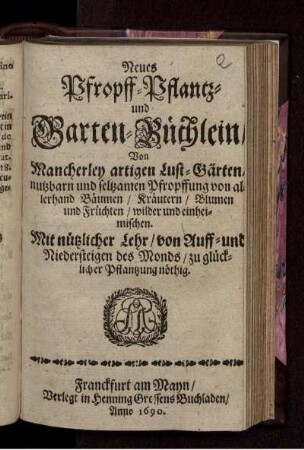 Neues
Pfropff-Pflantz-
und
Garten-Büchlein/
Von
Mancherley artigen Lust-Gärten/
nutzbarn und seltzamen Pfropffung von al-
lerhand Bäumen / Kräutern / Blumen
und Früchten / wilder und einhei-
mischen.
Mit nützlicher Lehr / von Auff- und
Niedersteigen des Monds / zu glück-
licher Pflantzung nöthig.
Franckfurt am Mayn/
Verlegt in Henning Grossens Buchladen/
Anno 1690.